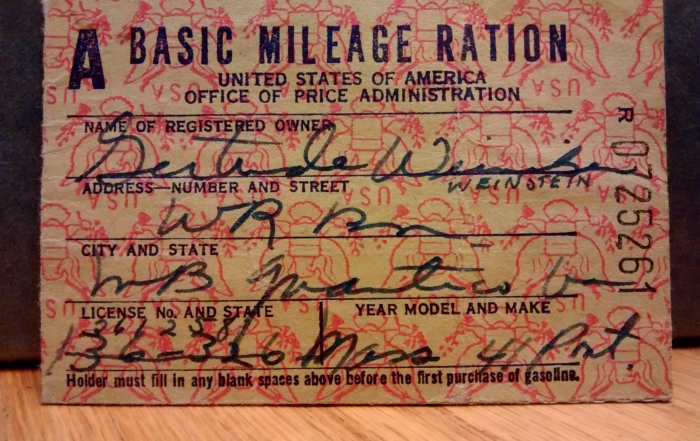 A BASIC MILEAGE RATION
UNITED STATES OF AMERICA
OFFICE OF PRICE ADMINISTRATION
NAME OF REGISTERED OWNER
Gertrude
WEINSTEIN
ADDRESS—NUMBER AND STREET
WR
CITY AND STATE
MB Quantico Va
LICENSE No. AND STATE YEAR MODEL AND MAKE
361238
136-326 Mass 41 Pont.
Holder must fill in any blank spaces above before the first purchase of gasoline.
R 0725261